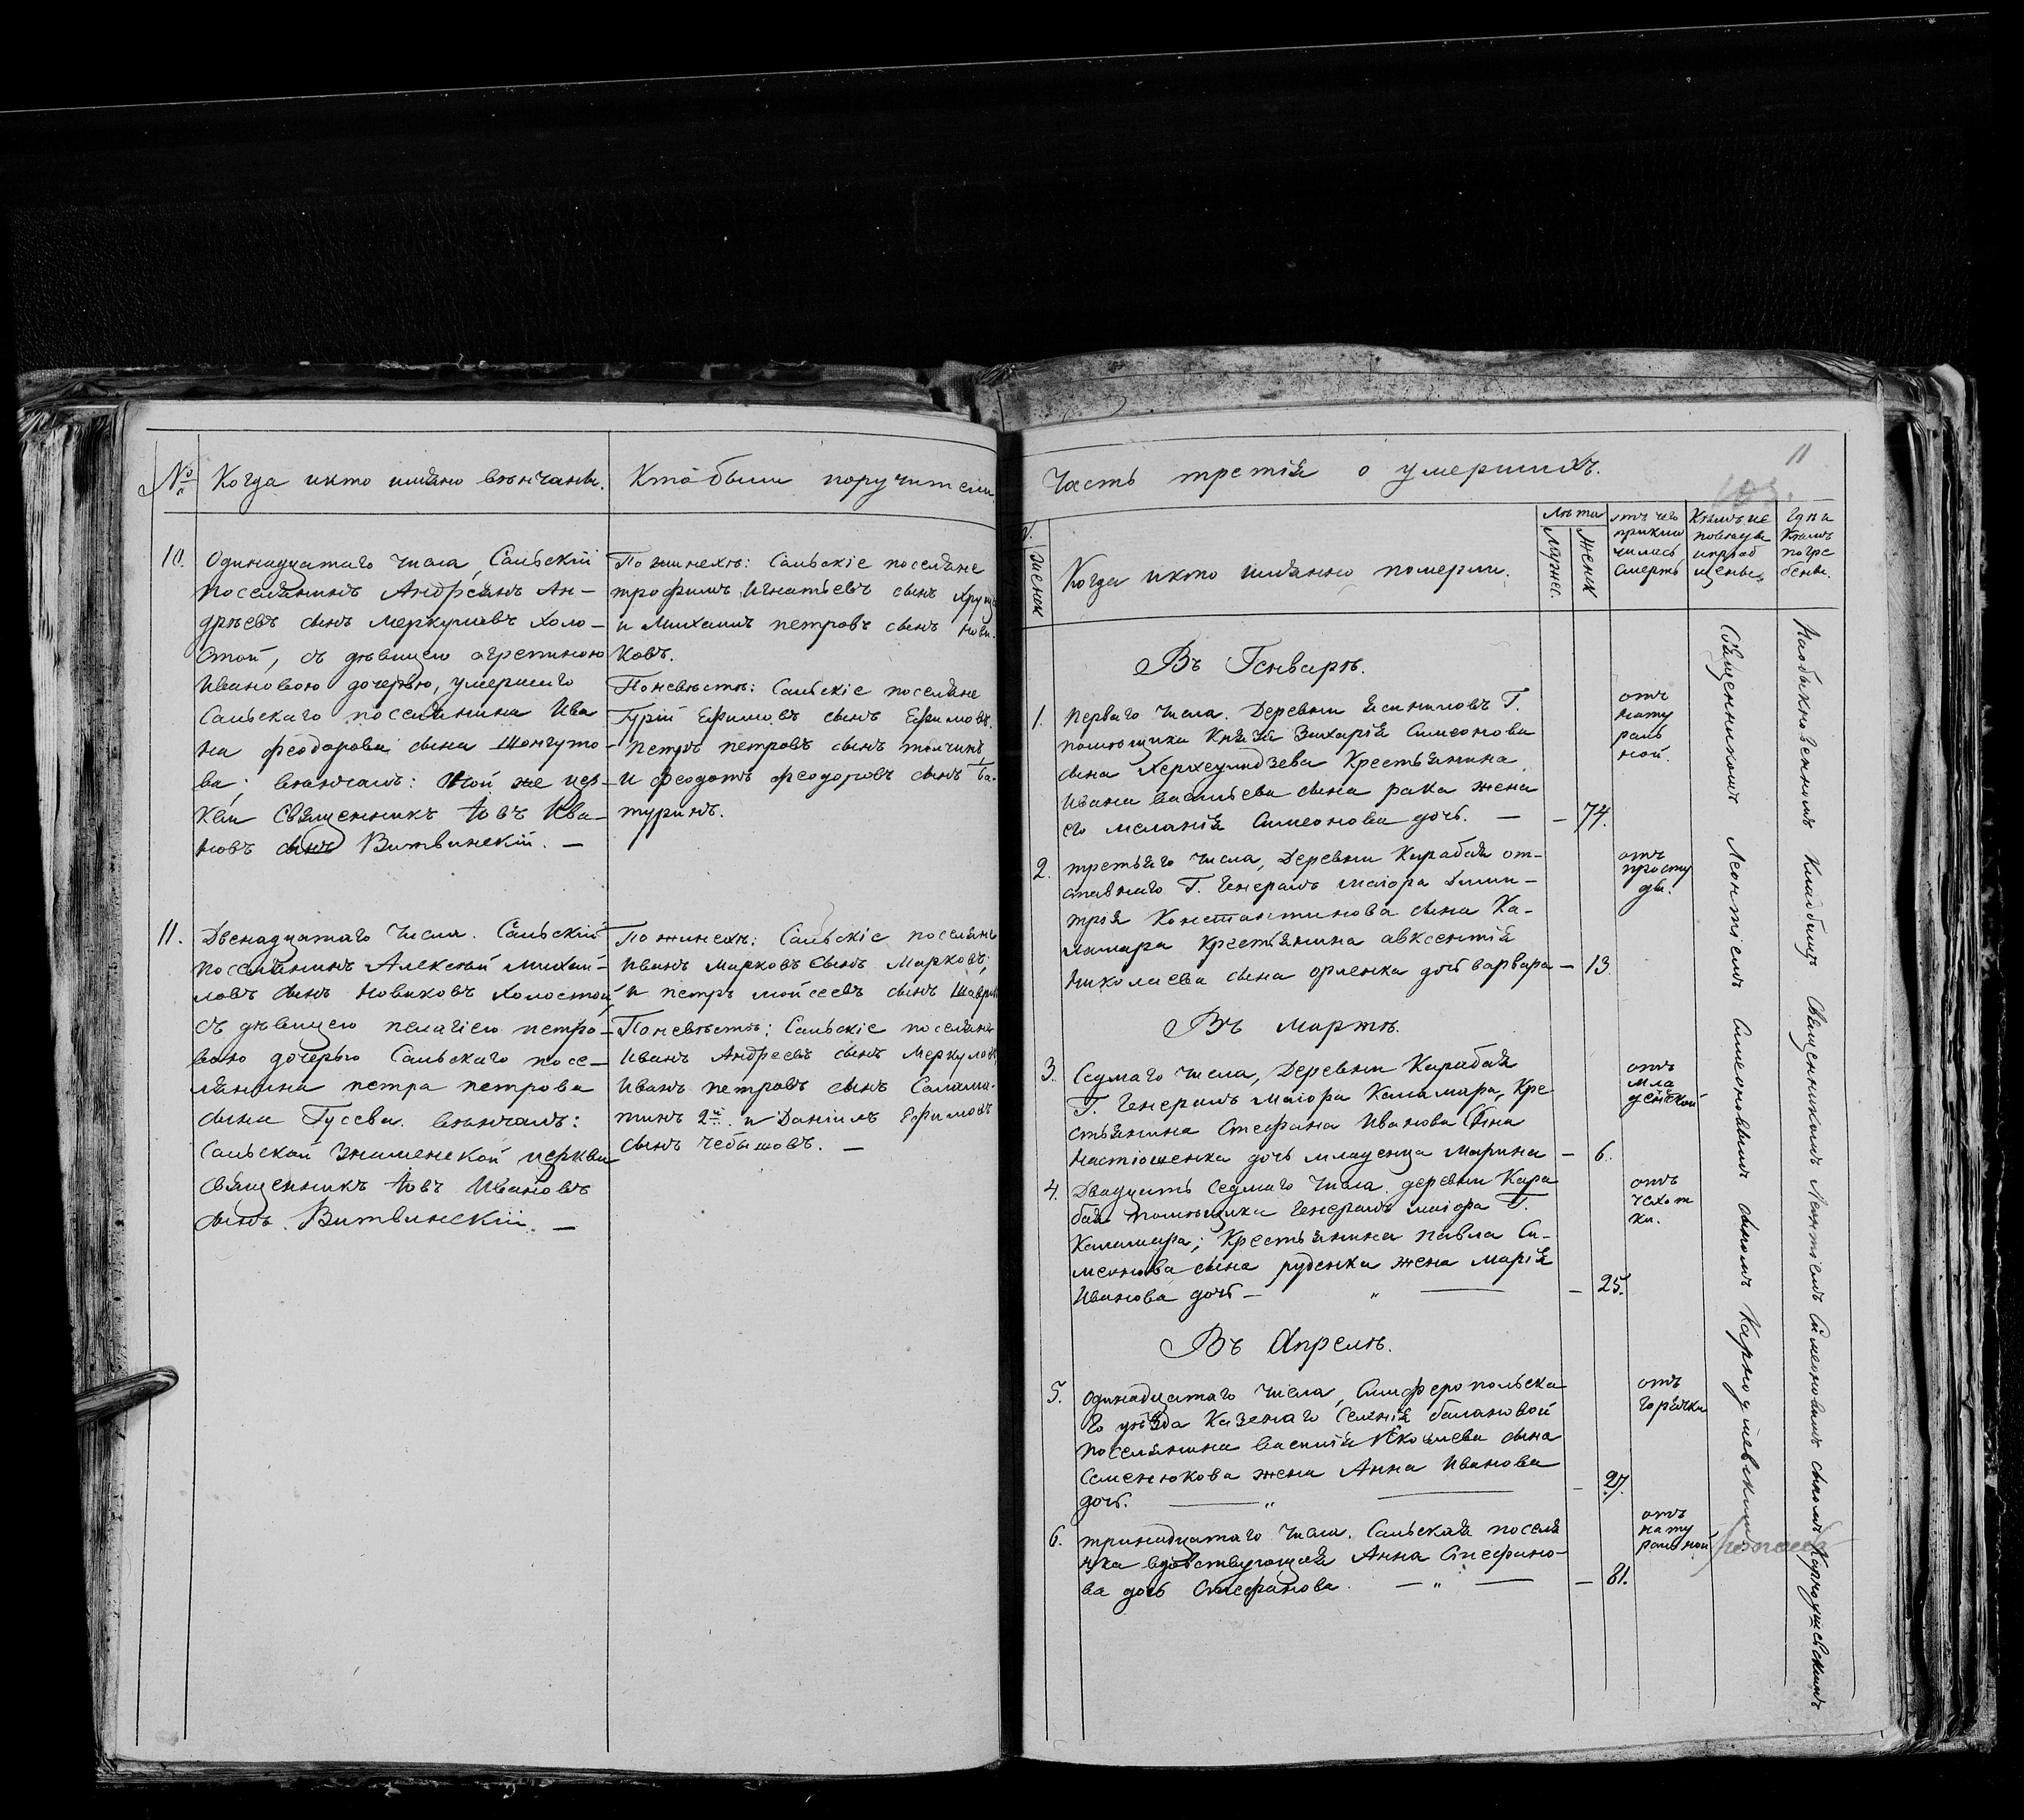 №
Когда икто имяно вѣнчаны.
Кто были поручители
10.
Одинадцатаго числа, Сальскій
поселянинъ Андреянъ Ан-
дрѣевъ сынъ Меркуловъ холо-
стой, съ дѣвицею агрепиною
Ивановою дочерью, умершаго
Сальскаго поселянина Ива
на Феодорова сына Шонгуто
ва; вѣнчалъ: той же цер-
кви священникъ Іовъ Ива-
новъ сынъ Витвинскій. —
По жинехѣ: Сальскіе поселяне
трофимъ Игнатьевъ сынъ
и Михаилъ петровъ сынъ Нови-
ковъ.
По невѣстѣ: Сальскіе поселяне
Гурій Ефимовъ сынъ Ефимовъ.
петръ петровъ сынъ толчинъ
и феодотъ феодоровъ сынъ Ба-
туринъ.
11.
Двенадцатаго числа. Сальскій
поселянинъ Алексѣй Михай-
ловъ сынъ Новиковъ холостой,
съ дѣвицею пелагіею петро-
вою дочерью Сальскаго посе-
лянина петра петрова
сына Гусева. вѣнчалъ:
Сальской Знаменской церкви
священникъ Іовъ Ивановъ
сынъ Витвинскій. —
По жинехѣ: Сальскіе поселяне
Иванъ Марковъ сынъ Марковъ;
и петръ мойсеевъ сынъ
По невѣстѣ: Сальскіе поселяне
Иванъ Андреевъ сынъ Меркуловъ,
Иванъ петровъ сынъ Салама-
тинъ 2й и Даніилъ Ефимовъ
сынъ Чебышовъ. —
11
Часть третія о умершихъ.
Женск
Когда икто имянно померли.
Лѣта
Мужес.
Женск
отъ чего
приклю
чилась
смерть
Кѣмъ ис
повѣданы
ипріоб
щены
Гдѣ и
кѣмъ
погре
бены.
Въ Генварѣ.
1.
перваго числа. Деревни Г.
помѣщика Князя Захарія Симеонова
сына Херхеулидзева Крестьянина
Ивана Васильева сына рака жена
его меланія Симеонова дочь. —
— 74.
отъ
нату
раль
ной.
2.
третьяго числа, Деревни Карабая от-
ставнаго Г. Генералъ маіора Дими-
трія Константинова сына Ка-
ламара Крестьянина авксентія
Николаева сына орленка дочь варвара
— 13.
отъ
просту
ды.
Въ мартѣ.
3.
Седмаго числа, Деревни Карабая
Г. Генералъ маіора Каламара, Кре
стьянина Стефана Иванова сына
Настюшенка дочь младенца Марина
— 6.
отъ
мла
денской
4.
Двадцать седмаго числа деревни Кара
бая помѣщика Генералъ маіора Г.
Каламара; Крестьянина павла Си-
меонова сына руденка жена Марія
Иванова дочь — „ —
— 25.
отъ
чехот
ки.
Въ Апрелѣ.
5.
Одинадцатаго числа, Симферопольска
го уѣзда Казенаго Селенія балановой
поселянина Василія Яковлева сына
Семенюкова жена Анна Иванова
дочь. — „ —
— 27.
отъ
горячки
6.
тринадцатаго числа. Сальская поселя
нка вдовствующая Анна Стефано-
ва дочь Стефанова. — „ —
— 81.
отъ
нату
ральной
Священникомъ Леонтіемъ Симеоновымъ сыномъ Карнодулевскимъ
На обыкновенномъ кладбищѣ Священникомъ Леонтіемъ Симеоновымъ сыномъ